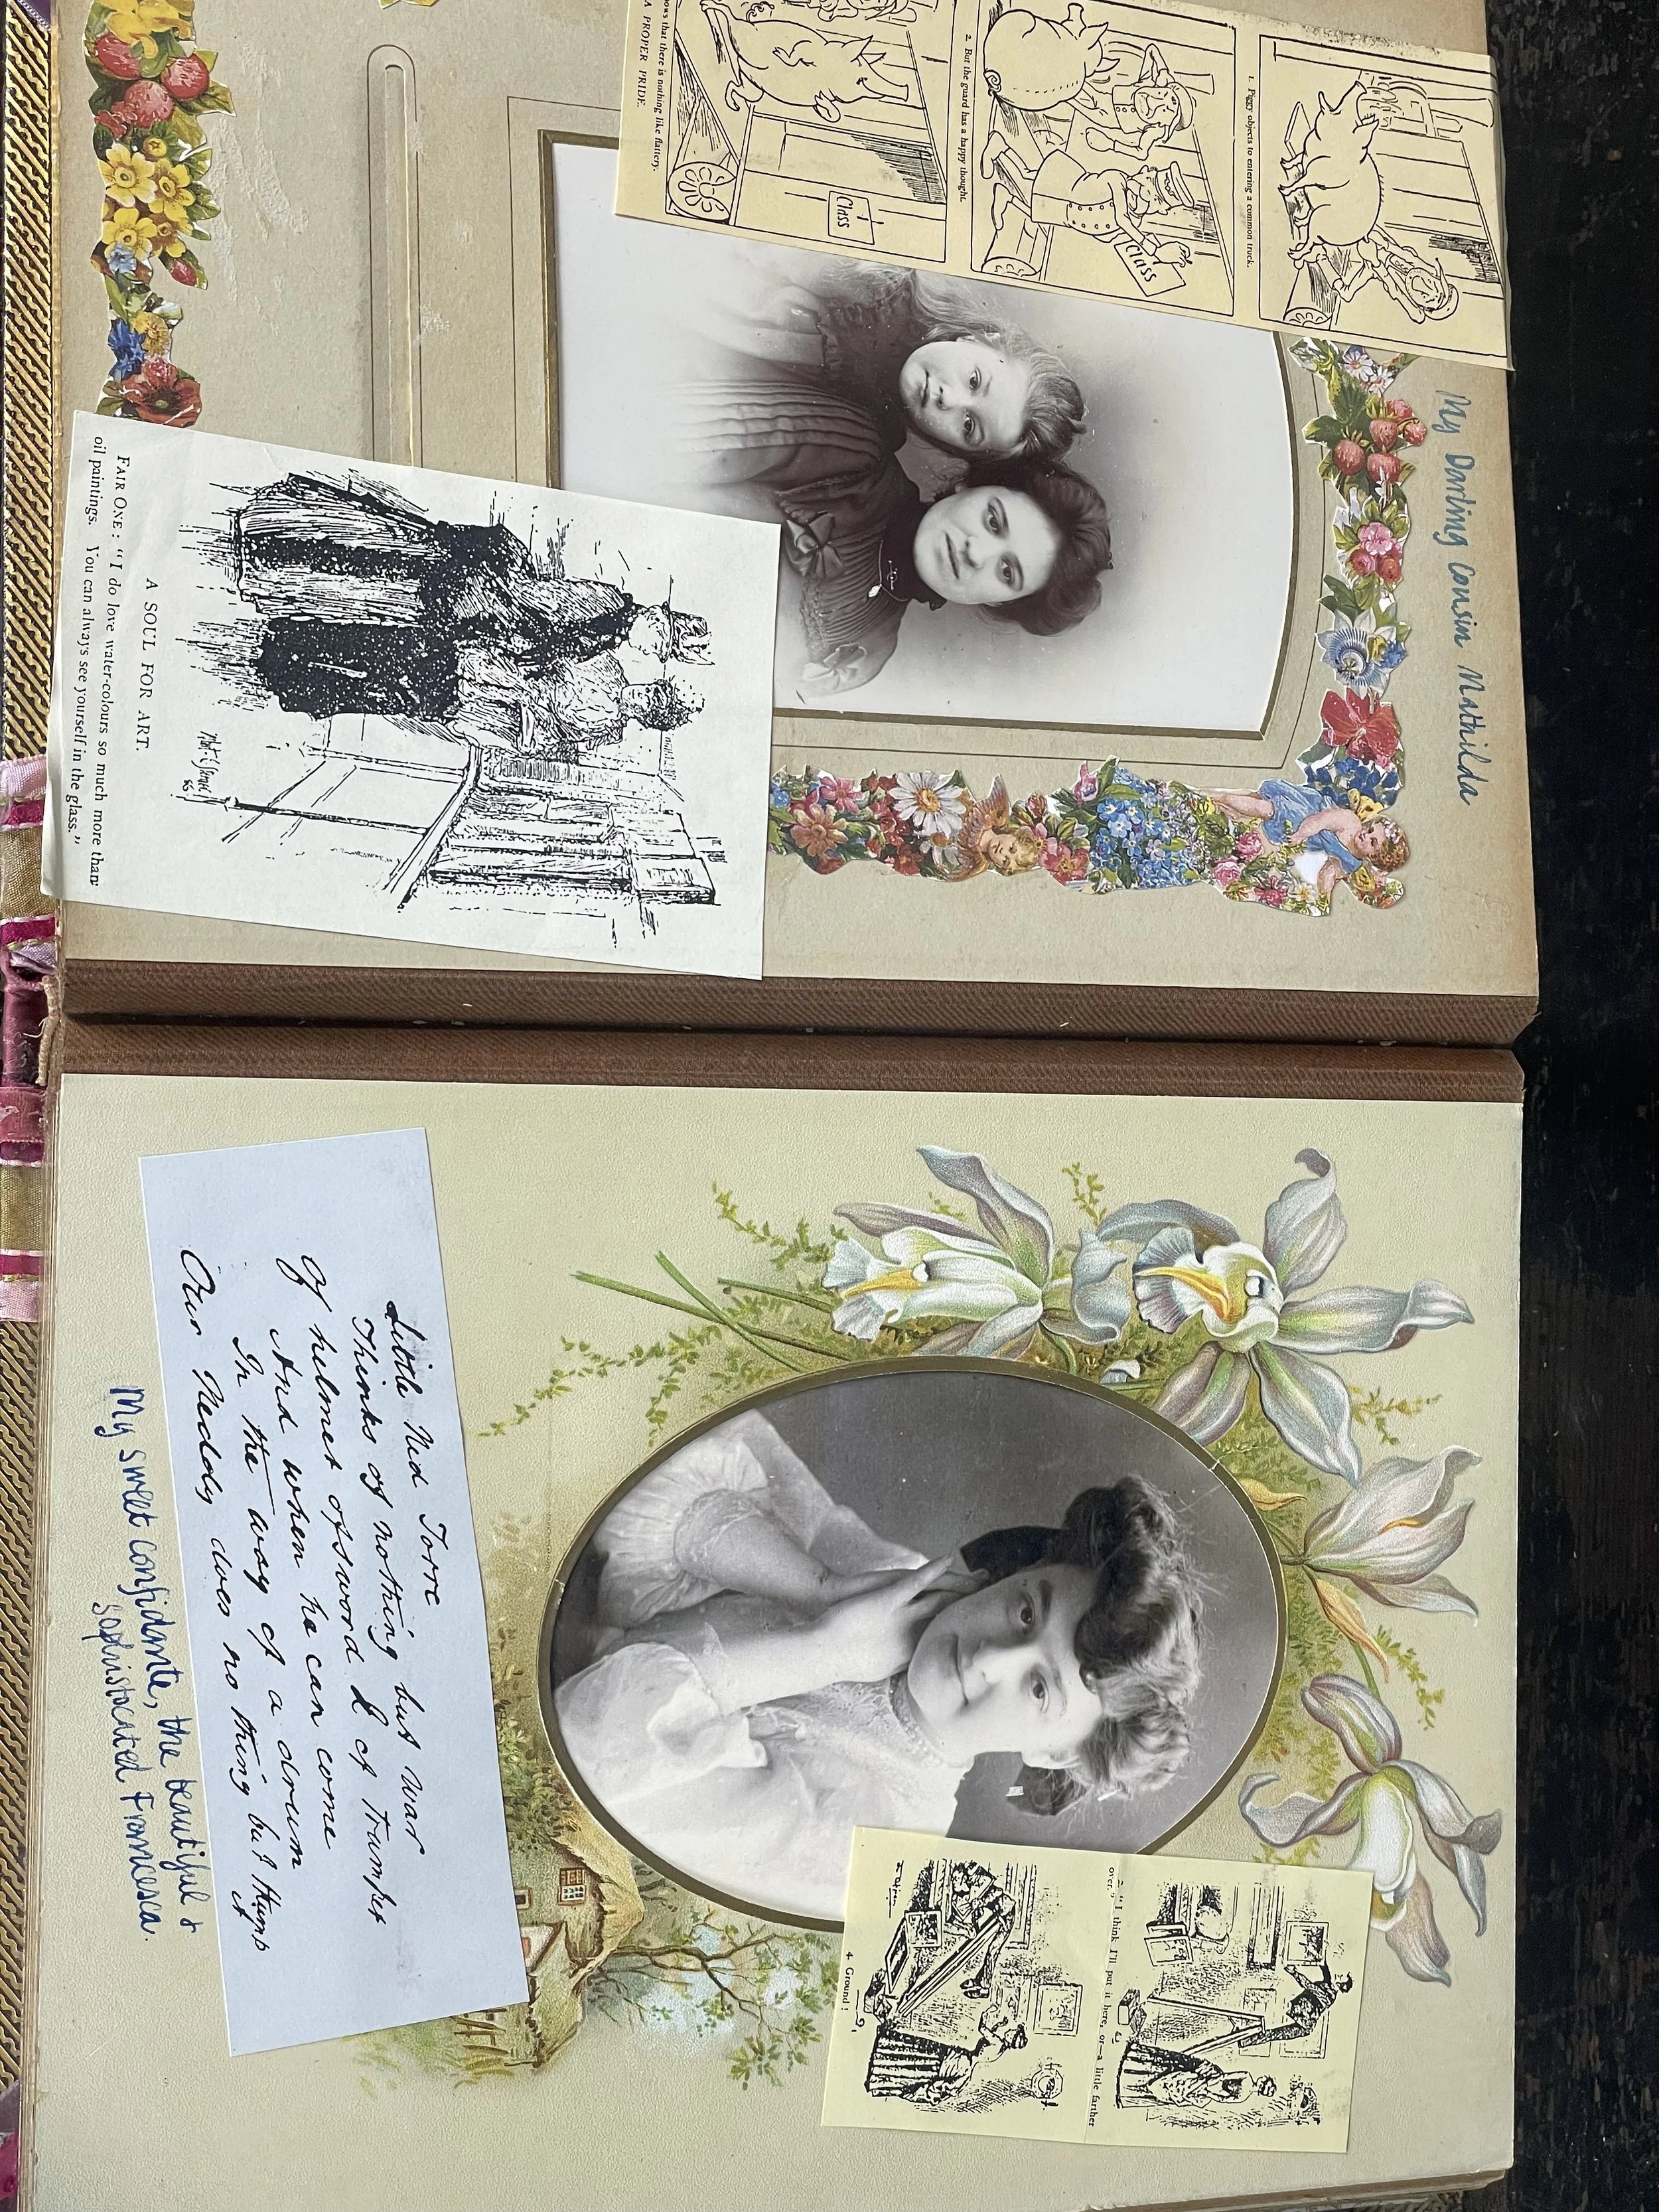 My Darling Cousin Mathilda
1. Piggy objects to entering a common truck.
2. But the guard has a happy thought.
Class
Class
ows that there is nothing like flattery.
A PROPER PRIDE.
A SOUL FOR ART.
FAIR ONE: "I do love water-colours so much more than
oil paintings. You can always see yourself in the glass."
2. "I think I'll put it here, or—a little farther
over."
4. Ground!
Little Ned Torre
Thinks of nothing but war
Of helmet of sword & of trumpet
And when he can come
In the way of a drum
Our Neddy does no thing but thump it
My sweet confidante, the beautiful &
sophistocated Francesca.